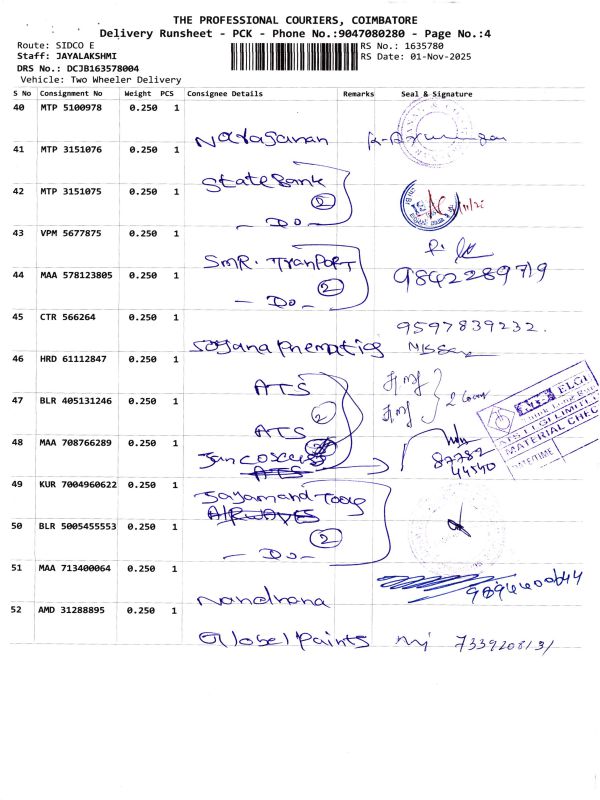 THE PROFESSIONAL COURIERS, COIMBATORE
Delivery Runsheet - PCK - Phone No.:9047080280 - Page No.:4
Route: SIDCO E
RS No.: 1635780
Staff: JAYALAKSHMI
RS Date: 01-Nov-2025
DRS No.: DCJB163578004
Vehicle: Two Wheeler Delivery
S No Consignment No Weight PCS Consignee Details Remarks Seal & Signature
40 MTP 5100978 0.250 1
Narayanan
41 MTP 3151076 0.250 1
State Bank
42 MTP 3151075 0.250 1
2
- Do -
43 VPM 5677875 0.250 1
SMR. TranPORT
44 MAA 578123805 0.250 1 9842289719
2
- Do -
45 CTR 566264 0.250 1
9597839232.
46 HRD 61112847 0.250 1
ATS
47 BLR 405131246 0.250 1
2
ATS
ELGI
ATS ELGI LIMITED
MATERIAL CHEC
DATE/TIME
48 MAA 708766289 0.250 1
87782
44540
ATS
49 KUR 7004960622 0.250 1
AIRWAVES
50 BLR 5005455553 0.250 1
2
- Do -
51 MAA 713400064 0.250 1
Nandhana
52 AMD 31288895 0.250 1
Global Paints